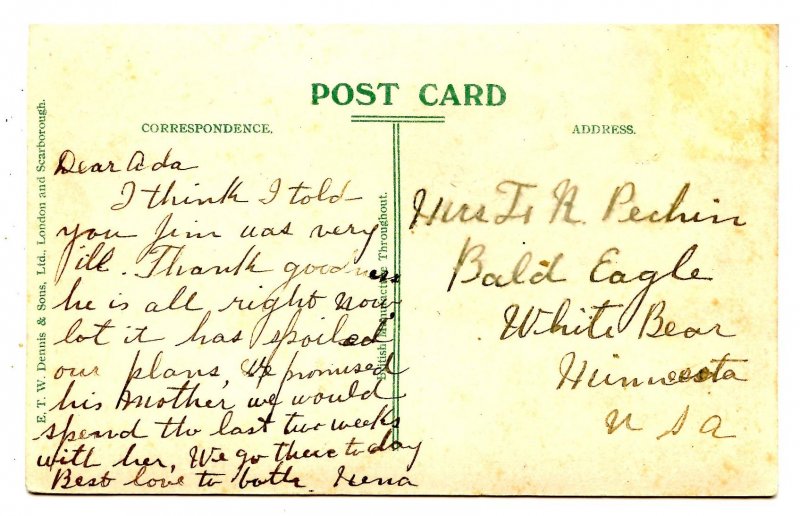 POST CARD
CORRESPONDENCE.
ADDRESS.
E. T. W. Dennis & Sons, Ltd., London and Scarborough.
British Manufacture Throughout.
Dear Ada
I think I told
you Jim was very
ill. Thank goodness
he is all right now
but it has spoiled
our plans, We promised
his Mother we would
spend the last two weeks
with her, We go there today
Best love to both.
Mrs N. Pechin
Bald Eagle
White Bear
Minnesota
U S A